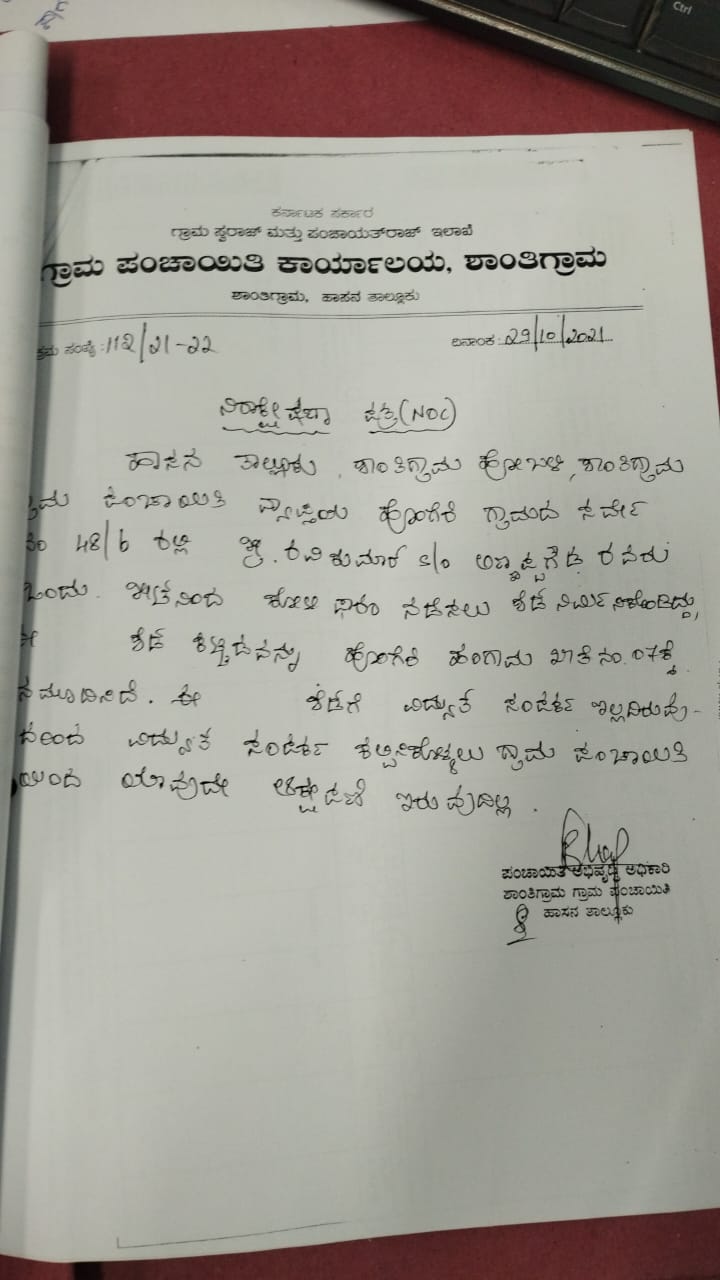 ಕರ್ನಾಟಕ ಸರ್ಕಾರ
ಗ್ರಾಮ ಸ್ವರಾಜ್ ಮತ್ತು ಪಂಚಾಯತ್‌ರಾಜ್ ಇಲಾಖೆ
ಗ್ರಾಮ ಪಂಚಾಯಿತಿ ಕಾರ್ಯಾಲಯ, ಶಾಂತಿಗ್ರಾಮ
ಶಾಂತಿಗ್ರಾಮ, ಹಾಸನ ತಾಲ್ಲೂಕು
ಕ್ರಮ ಸಂಖ್ಯೆ: 112/21-22 ದಿನಾಂಕ: 29/10/2021
ನಿರಾಕ್ಷೇಪಣಾ ಪತ್ರ (NOC)
ಹಾಸನ ತಾಲ್ಲೂಕು, ಶಾಂತಿಗ್ರಾಮ ಹೋಬಳಿ, ಶಾಂತಿಗ್ರಾಮ
ಗ್ರಾಮ ಪಂಚಾಯಿತಿ ವ್ಯಾಪ್ತಿಯ ಹೊಂಗೆರೆ ಗ್ರಾಮದ ಸರ್ವೇ
ನಂ 48/6 ರಲ್ಲಿ ಶ್ರೀ. ರವಿಕುಮಾರ್ s/o ಅಣ್ಣಪ್ಪಗೌಡ ರವರು
ಒಂದು. ಕೋಳಿ ಫಾರಂ ನಡೆಸಲು ಶೆಡ್ ನಿರ್ಮಿಸಿಕೊಂಡಿದ್ದು,
ಈ ಶೆಡ್ ಕಟ್ಟಡವನ್ನು ಹೊಂಗೆರೆ ಹಂಗಾಮಿ ಖಾತೆ ನಂ. 07ಕ್ಕೆ
ನಮೂದಿಸಿದೆ. ಈ ಶೆಡ್‌ಗೆ ವಿದ್ಯುತ್ ಸಂಪರ್ಕ ಇಲ್ಲದಿರುವು-
ದರಿಂದ ವಿದ್ಯುತ್ ಸಂಪರ್ಕ ಕಲ್ಪಿಸಿಕೊಳ್ಳಲು ಗ್ರಾಮ ಪಂಚಾಯಿತಿ
ಯಿಂದ ಯಾವುದೇ ಆಕ್ಷೇಪಣೆ ಇರುವುದಿಲ್ಲ.
ಪಂಚಾಯಿತಿ ಅಭಿವೃದ್ಧಿ ಅಧಿಕಾರಿ
ಶಾಂತಿಗ್ರಾಮ ಗ್ರಾಮ ಪಂಚಾಯಿತಿ
ಹಾಸನ ತಾಲ್ಲೂಕು
Ctrl